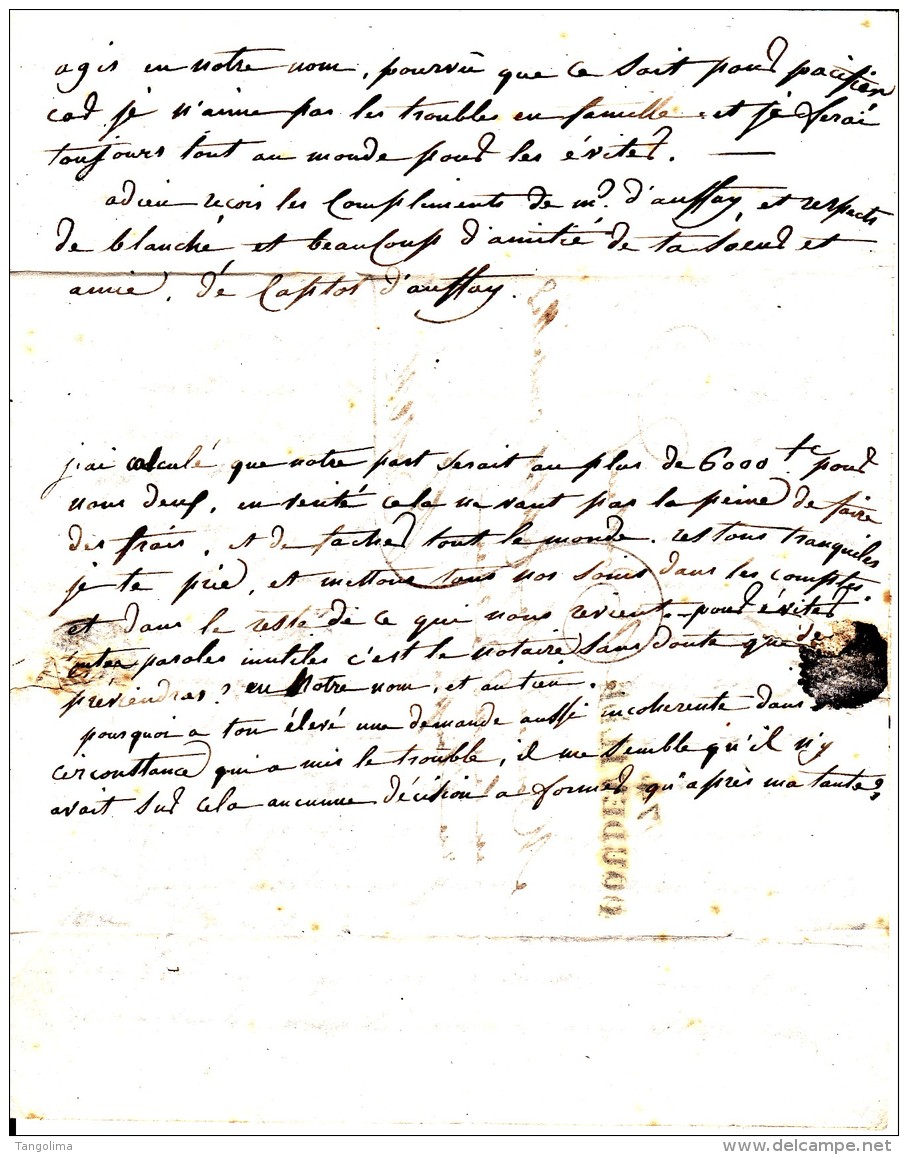 agir en notre nom, pourvu que ce soit pour pacifier
car je n'aime pas les troubles en famille et je ferai
toujours tout au monde pour les éviter. —
adieu reçois les Compliments de mr. d'auffay, et respects
de blanche et beauCoup d'amitié de ta Soeur et
amie. de Captot d'auffay.
j'ai calculé que notre part serait au plus de 6000 tc pour
nous deux, en verité cela ne vaut pas la peine de faire
des frais, et de facher tout le monde. restons tranquiles
je te prie, et mettons tous nos soins dans les comptes
et dans le reste de ce qui nous revient. pour éviter
paroles inutiles c'est le notaire sans doute que
préviendras? en Notre nom, et au tien.
pourquoi a ton élevé une demande aussi incoherente dans
circonstance qui a mis le trouble, il me semble qu'il n'y
avait sur cela aucunne décision a former qu'après ma tante?
Tangolima
www.delcampe.net